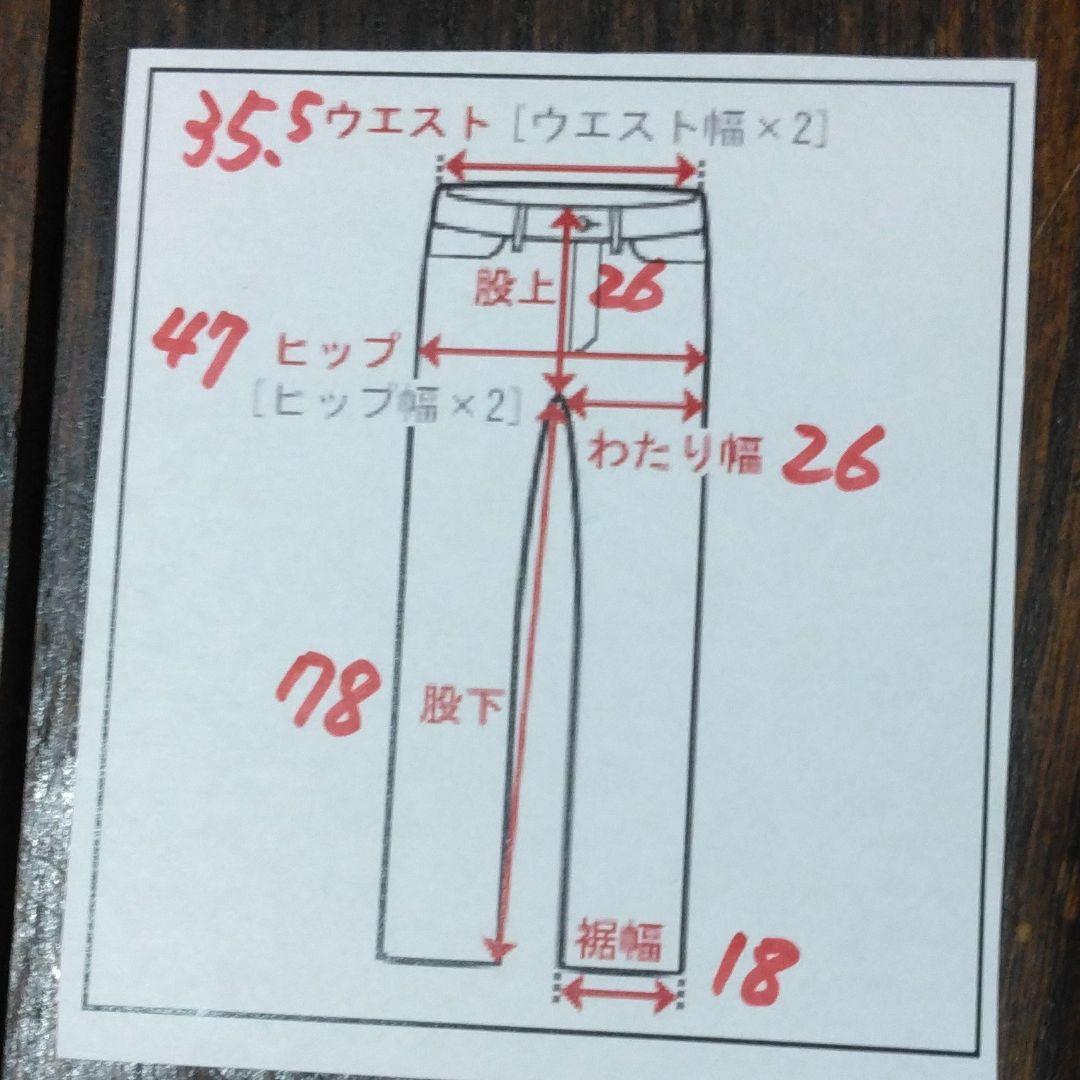 35.5 ウエスト [ウエスト幅×2]
股上 26
47 ヒップ
[ヒップ幅×2]
わたり幅 26
78 股下
裾幅 18